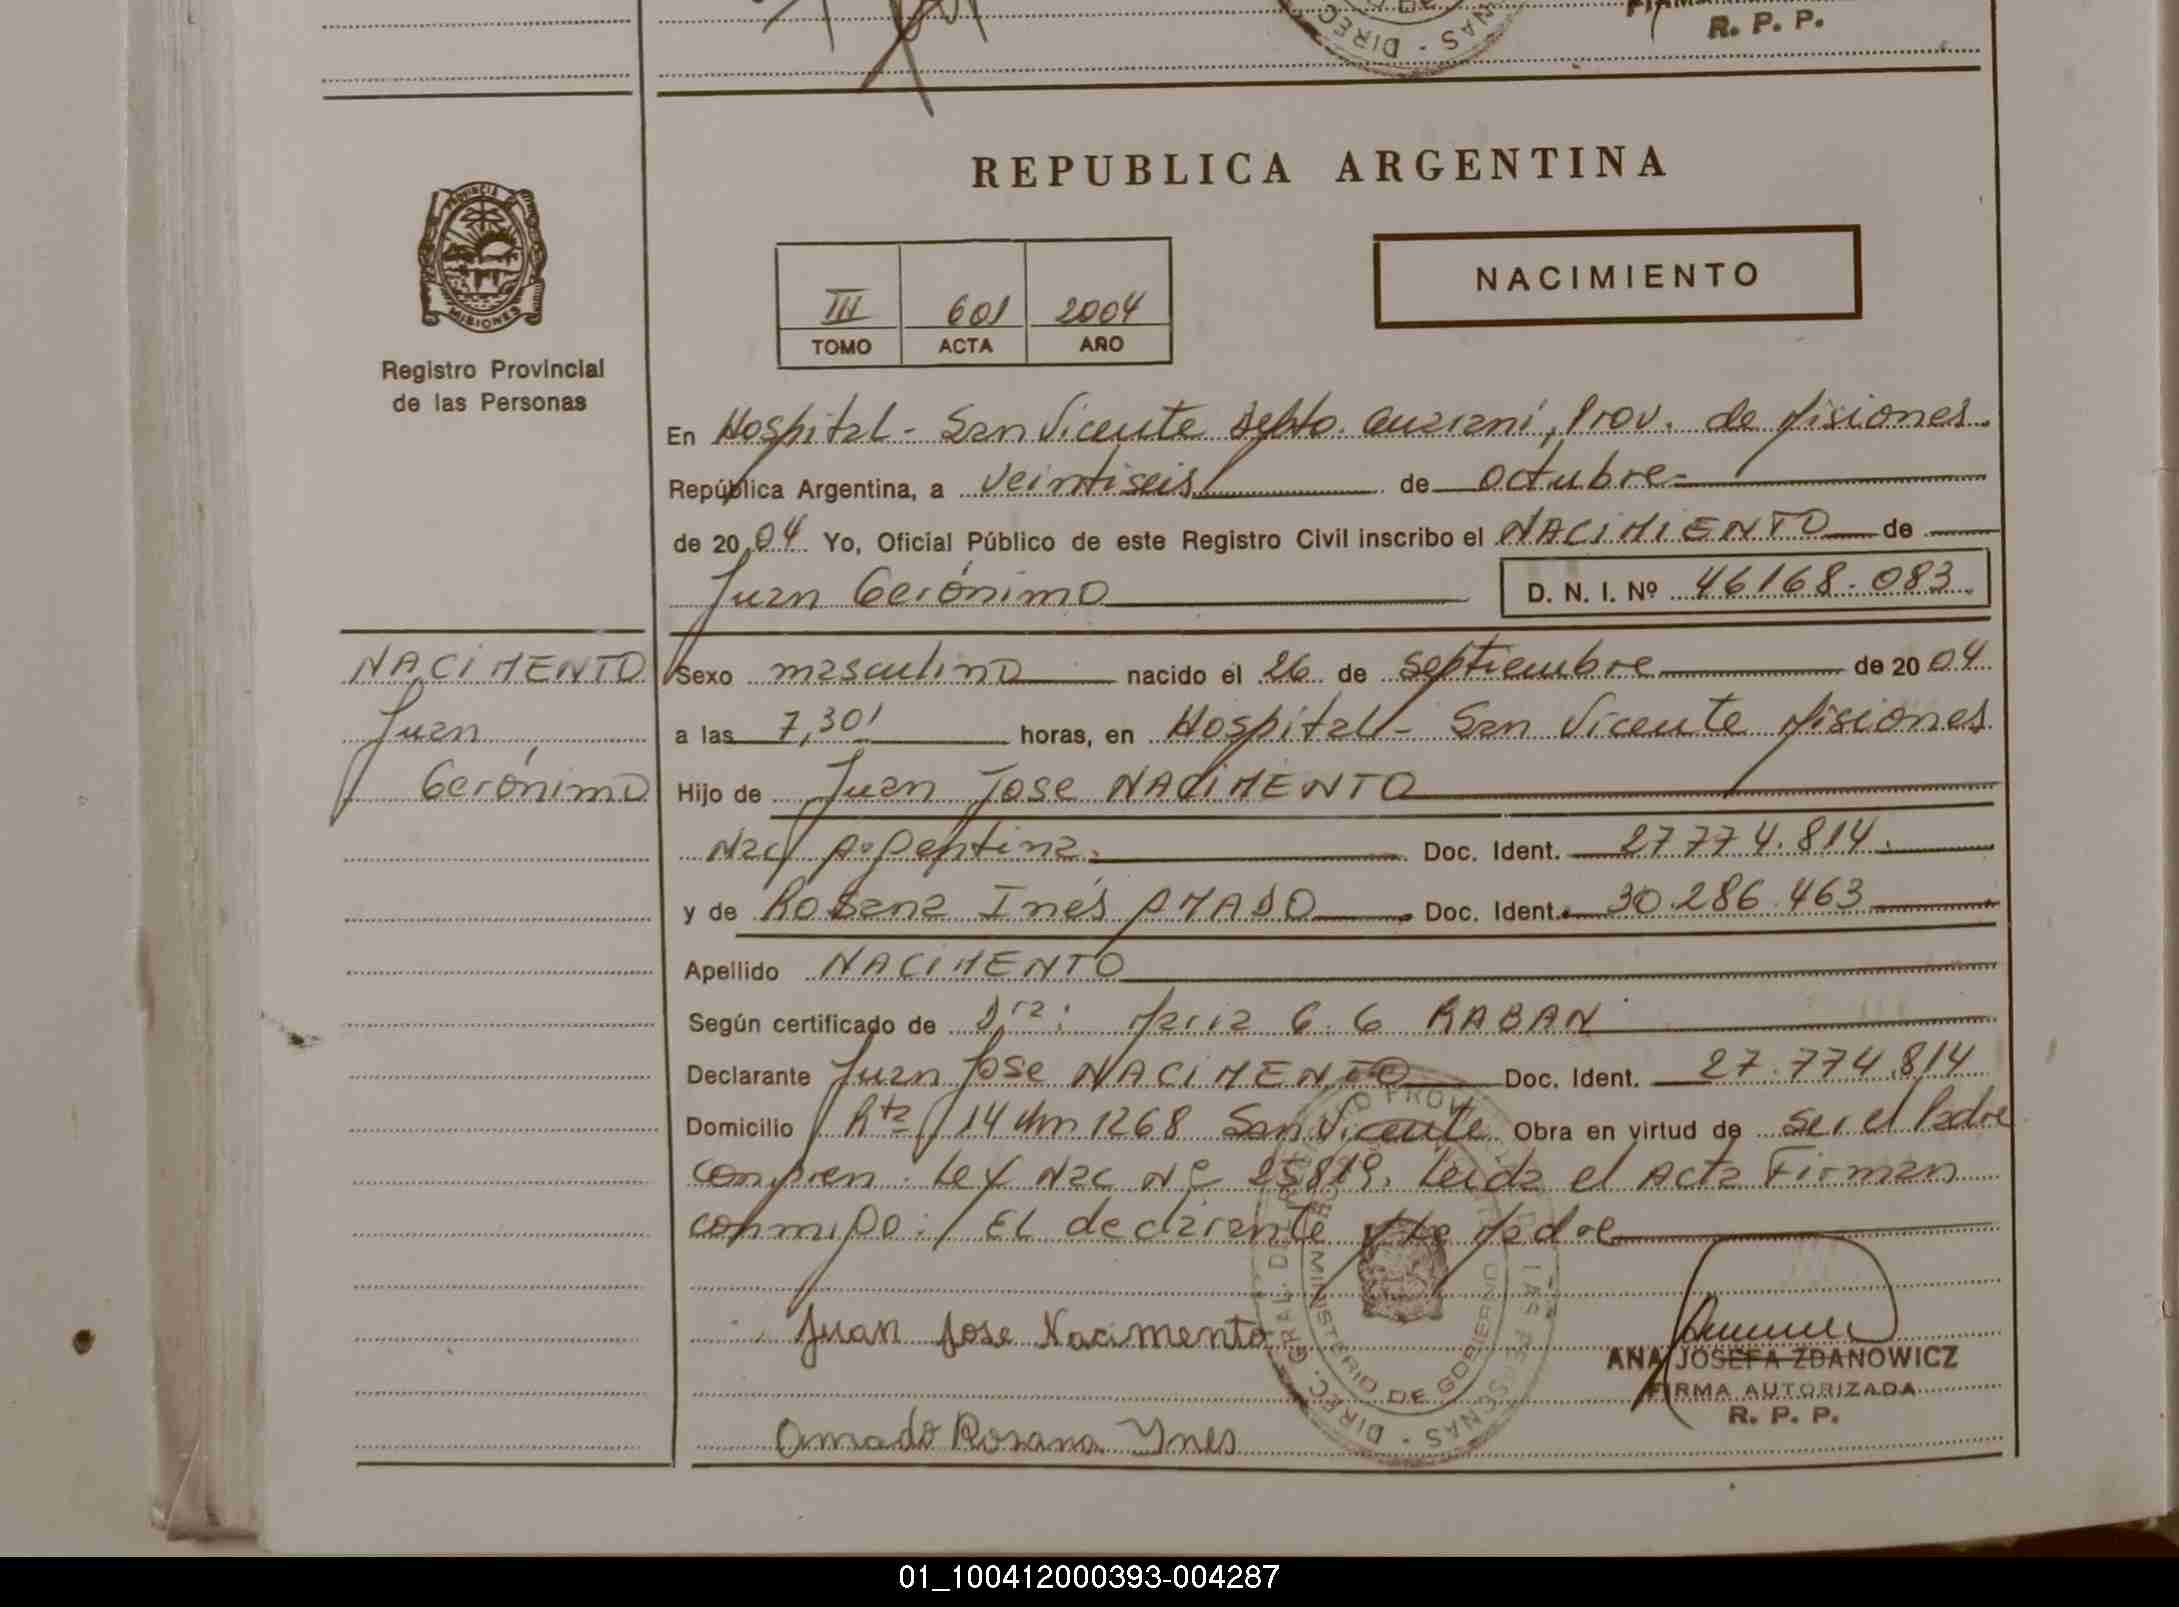 NAS - DIREC
R. P. P.
REPUBLICA ARGENTINA
PROVINCIA
MISIONES
Registro Provincial
de las Personas
NACIMIENTO
III 601 2004
TOMO ACTA AÑO
En Hospital - San Vicente Depto. Guaraní, Prov. de Misiones.
República Argentina, a veintiseis de octubre
de 2004 Yo, Oficial Público de este Registro Civil inscribo el NACIMIENTO de
Juan Gerónimo D. N. I. Nº 46168.083
NACIMENTO
Juan
Gerónimo
Sexo masculino nacido el 26 de septiembre de 2004
a las 7,30' horas, en Hospital - San Vicente Misiones
Hijo de Juan Jose NACIMENTO
Nac Argentina. Doc. Ident. 27774.814.
y de Rosana Inés AMADO Doc. Ident. 30.286.463
Apellido NACIMENTO
Según certificado de Dra: Maria G. G RABAN
Declarante Juan Jose NACIMENTO Doc. Ident. 27.774.814
Domicilio Rta 14 Km 1268 San Vicente Obra en virtud de ser el Padre
Ley Nac Nº 25819. Leida el Acta Firman
conmigo: El declarante y la Madre
Juan Jose Nacimento
Amado Rosana Ynes
MINISTERIO DE GOBIERNO
ANA JOSEFA ZDANOWICZ
FIRMA AUTORIZADA
R. P. P.
01_100412000393-004287